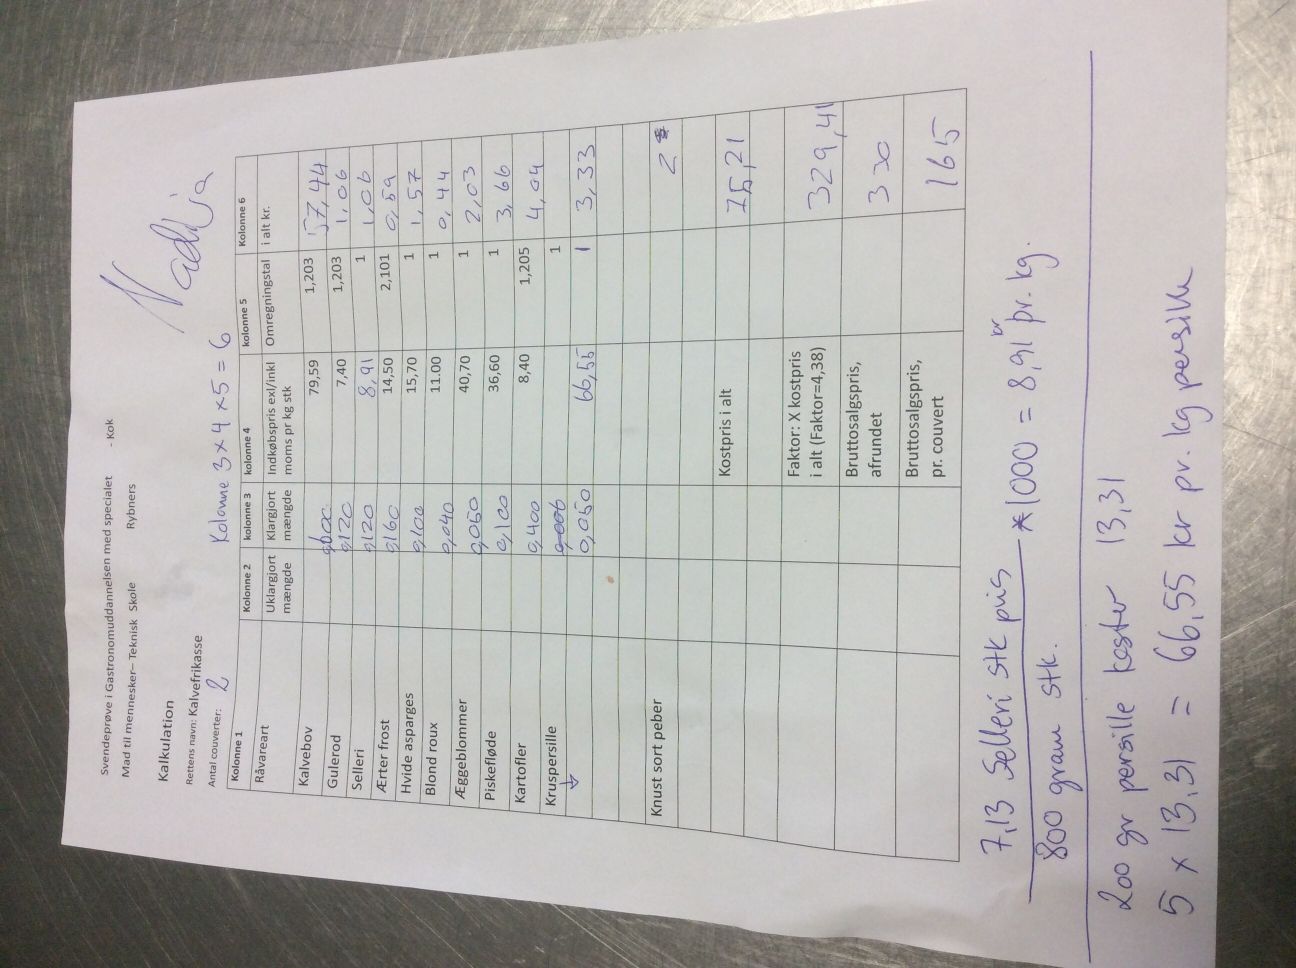 Svendeprøve i Gastronomuddannelsen med specialet - Kok
Mad til mennesker– Teknisk Skole Rybners
Nadia
Kalkulation
Rettens navn: Kalvefrikasse
Antal couverter: 2 Kolonne 3 x 4 x 5 = 6
Kolonne 1 Kolonne 2 kolonne 3 kolonne 4 kolonne 5 Kolonne 6
Råvareart Uklargjort mængde Klargjort mængde Indkøbspris exl/inkl moms pr kg stk Omregningstal i alt kr.
Kalvebov 0,600 79,59 1,203 57,44
Gulerod 0,120 7,40 1,203 1,06
Selleri 0,120 8,91 1 1,06
Ærter frost 0,160 14,50 2,101 0,59
Hvide asparges 0,100 15,70 1 1,57
Blond roux 0,040 11.00 1 0,44
Æggeblommer 0,050 40,70 1 2,03
Piskefløde 0,100 36,60 1 3,66
Kartofler 0,400 8,40 1,205 4,04
Kruspersille 0,006 1
0,050 66,55 1 3,33
Knust sort peber 2
Kostpris i alt 75,21
Faktor: X kostpris i alt (Faktor=4,38) 329,41
Bruttosalgspris, afrundet 330
Bruttosalgspris, pr. couvert 165
7,13 Selleri stk pris * 1000 = 8,91 kr pr. kg.
800 gram stk.
200 gr persille koster 13,31
5 x 13,31 = 66,55 kr pr. kg persille